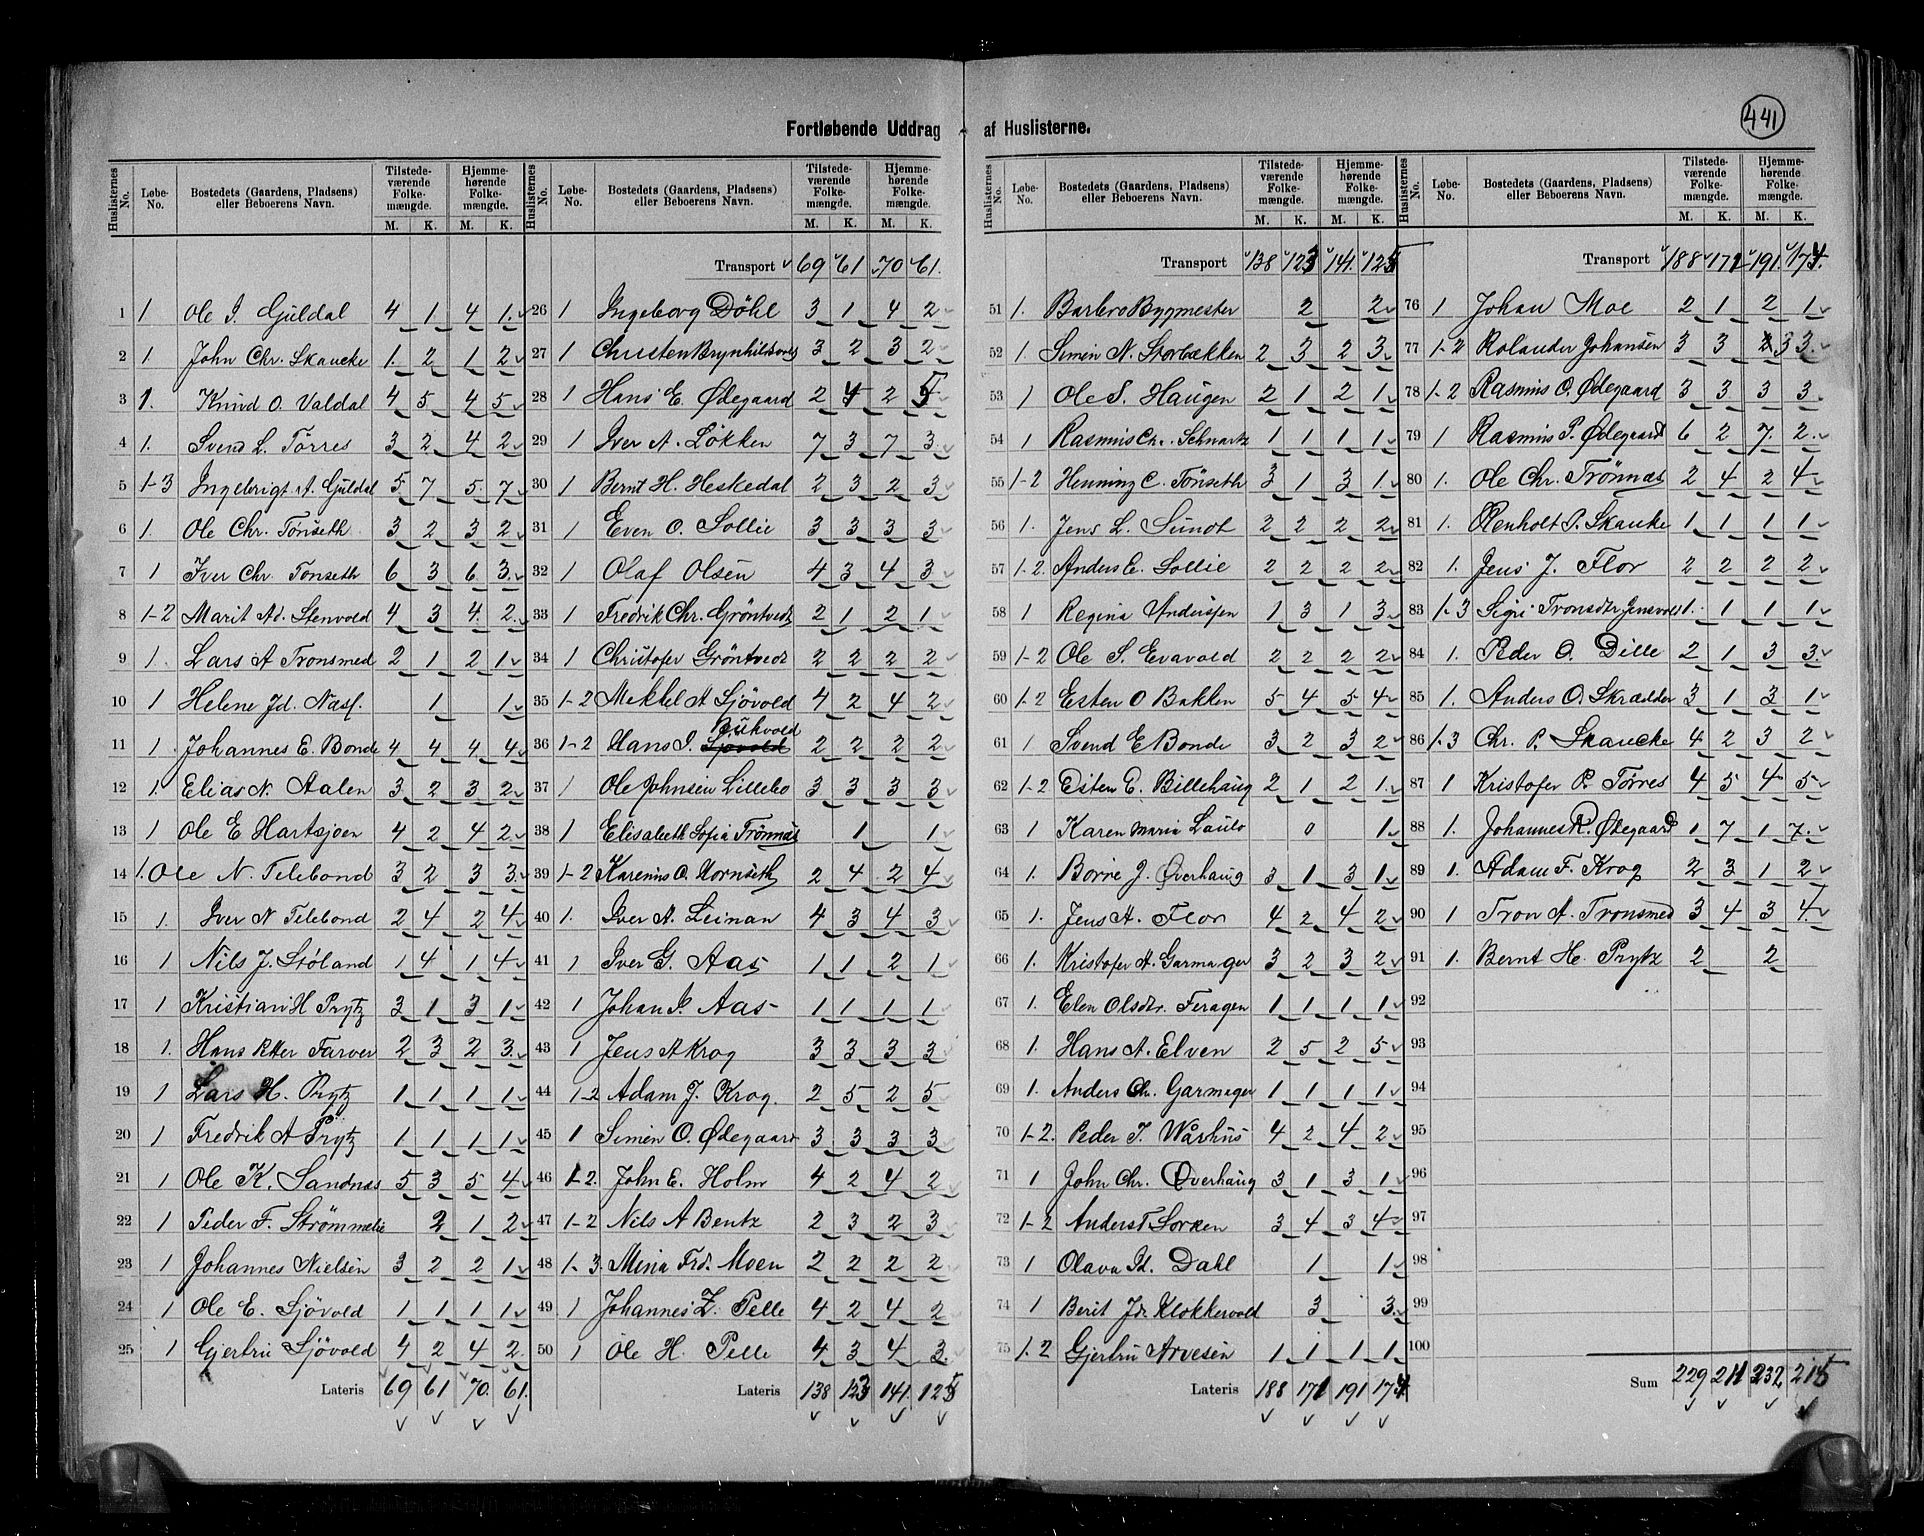 441
Fortløbende Uddrag af Huslisterne.
Huslisternes No. Løbe-No. Bostedets (Gaardens, Pladsens) eller Beboerens Navn. Tilstedeværende Folkemængde. M. K. Hjemmehørende Folkemængde. M. K.
1 1 Ole J. Guldal 4 1 4 1
2 1 John Chr. Skaucke 1 2 1 2
3 1. Knud O. Valdal 4 5 4 5
4 1. Svend L. Törres 3 2 4 2
5 1-3 Ingebrigt A. Guldal 5 7 5 7
6 1. Ole Chr. Tönseth 3 2 3 2
7 1 Iver Chr. Tönseth 6 3 6 3
8 1-2 Marit Ad. Stenvold 4 3 4 2
9 1. Lars A Tronsmed 2 1 2 1
10 1 Helene Jd. Næss. 1 1
11 1. Johannes E. Bonde 4 4 4 4
12 1. Elias N. Aalen 3 2 3 2
13 1 Ole E Hartsjoen 4 2 4 2
14 1. Ole N. Telebond 3 2 3 3
15 1. Iver N Telebond 2 4 2 4
16 1 Nils J. Stöland 1 4 1 4
17 1 Kristian H Prytz 3 1 3 1
18 1. Hans Petter Farver 2 3 2 3
19 1 Lars H. Prytz 1 1 1 1
20 1 Fredrik A Prytz 1 1 1 1
21 1 Ole K. Sandnæs 5 3 5 4
22 1 Peder F. Strömmelie 2 1 2
23 1 Johannes Nielsen 3 2 2 1
24 1 Ole E. Sjövold 1 1 1 1
25 1 Gjertru Sjövold 4 2 4 2
Lateris 69 61 70 61.
Huslisternes No. Løbe-No. Bostedets (Gaardens, Pladsens) eller Beboerens Navn. Tilstedeværende Folkemængde. M. K. Hjemmehørende Folkemængde. M. K.
Transport 69 61 70 61.
26 1 Ingeborg Döhl 3 1 4 2
27 1 Christen Brynhildsvold 3 2 3 2
28 1 Hans E. Ødegaard 2 4 2 5
29 1 Iver A. Lökken 7 3 7 3
30 1 Bernt H. Heskedal 2 3 2 3
31 1 Even O. Sollie 3 3 3 3
32 1 Olaf Olsen 4 3 4 3
33 1 Fredrik Chr. Gröntvedt 2 1 2 1
34 1 Christofer Gröntvedt 2 2 2 2
35 1-2 Mekkel A Sjövold 4 2 4 2
36 1-2 Hans J. Sjövold Bukvold 2 2 2 2
37 1 Ole Johnsen Lillebo 3 3 3 3
38 1 Elisabeth Sofia Trönnæs 1 1
39 1-2 Karenus O. Mornseth 2 4 2 4
40 1. Iver A. Leinan 4 3 4 3
41 1 Iver G. Aas 1 1 2 1
42 1 Johan J. Aas 1 1 1 1
43 1 Jens A Krog 3 3 3 3
44 1-2 Adam J. Krog. 2 5 2 5
45 1 Simen O. Ødegaard 3 3 3 3
46 1-2. John E. Holm 4 2 4 2
47 1-2 Nils A Bentz 2 3 2 3
48 1-3. Mina Frd. Moen 2 2 2 2
49 1 Johannes Z. Pelle 4 2 4 2
50 1 Ole H. Pelle 4 3 4 3
Lateris 138 123 141. 125
Huslisternes No. Løbe-No. Bostedets (Gaardens, Pladsens) eller Beboerens Navn. Tilstedeværende Folkemængde. M. K. Hjemmehørende Folkemængde. M. K.
Transport 138 123 141. 125
51 1. Barbro Bygmester 2 2
52 1. Simen N. Storbækken 2 3 2 3
53 1 Ole S. Haugen 2 1 2 1
54 1 Rasmus Chr. Schwartz 1 1 1 1
55 1-2 Henning C. Tönseth 3 1 3 1
56 1. Jens L. Sundt 2 2 2 2
57 1-2. Anders E. Sollie 2 2 2 2
58 1 Regina Anderssen 1 3 1 3
59 1-2 Ole S. Evavold 2 2 2 2
60 1-2 Esten O Bakken 5 4 5 4
61 1 Svend E Bonde 3 2 3 2
62 1-2 Esten E. Billehaug 2 1 2 1
63 1 Karen Maria Laulo 0 1
64 1. Borre J. Øverhaug 3 1 3 1
65 1. Jens A. Flor 4 2 4 2
66 1. Kristofer A. Garmager 3 2 3 2
67 1. Elen Olsdtr. Feragen 1 1 1 1
68 1. Hans A. Elven 2 5 2 5
69 1. Anders Chr. Garmager 1 1 1 1
70 1-2. Peder T. Warhus 4 2 4 2
71 1 John Chr. Øverhaug 3 1 3 1
72 1-2 Anders T. Sorken 3 4 3 4
73 1 Olava Pd. Dahl 1 1
74 1 Berit Jd. Klokkervold 3 3
75 1-2 Gjertru Arvesen 1 1 1 1
Lateris 188 171 191 174
Huslisternes No. Løbe-No. Bostedets (Gaardens, Pladsens) eller Beboerens Navn. Tilstedeværende Folkemængde. M. K. Hjemmehørende Folkemængde. M. K.
Transport 188 171 191. 174.
76 1 Johan Moe 2 1 2 1
77 1-2 Rolauder Johansen 3 3 3 3
78 1-2 Rasmus O. Ødegaard 3 3 3 3
79 1 Rasmus P. Ødegaard 6 2 7. 2
80 1. Ole Chr. Trönnæs 2 4 2 4
81 1. Renholt P. Skaucke 1 1 1 1
82 1. Jens J. Flor 2 2 2 2
83 1-3 Sigri Tronsdtr Jensvold 1 1 1 1
84 1. Peder O. Dille 2 1 3 3
85 1. Anders O. Skrædder 3 1 3 1
86 1-3 Chr. P. Skaucke 4 2 3 2
87 1 Kristofer P. Törres 4 5 4 5
88 1. Johannes R. Ødegaard 1 7 1 7
89 1. Adam F. Krog 2 3 1 2
90 1 Tron A. Tronsmed 3 4 3 4
91 1. Bernt H. Prytz 2 2
92
93
94
95
96
97
98
99
100
Sum 229 211 232 215